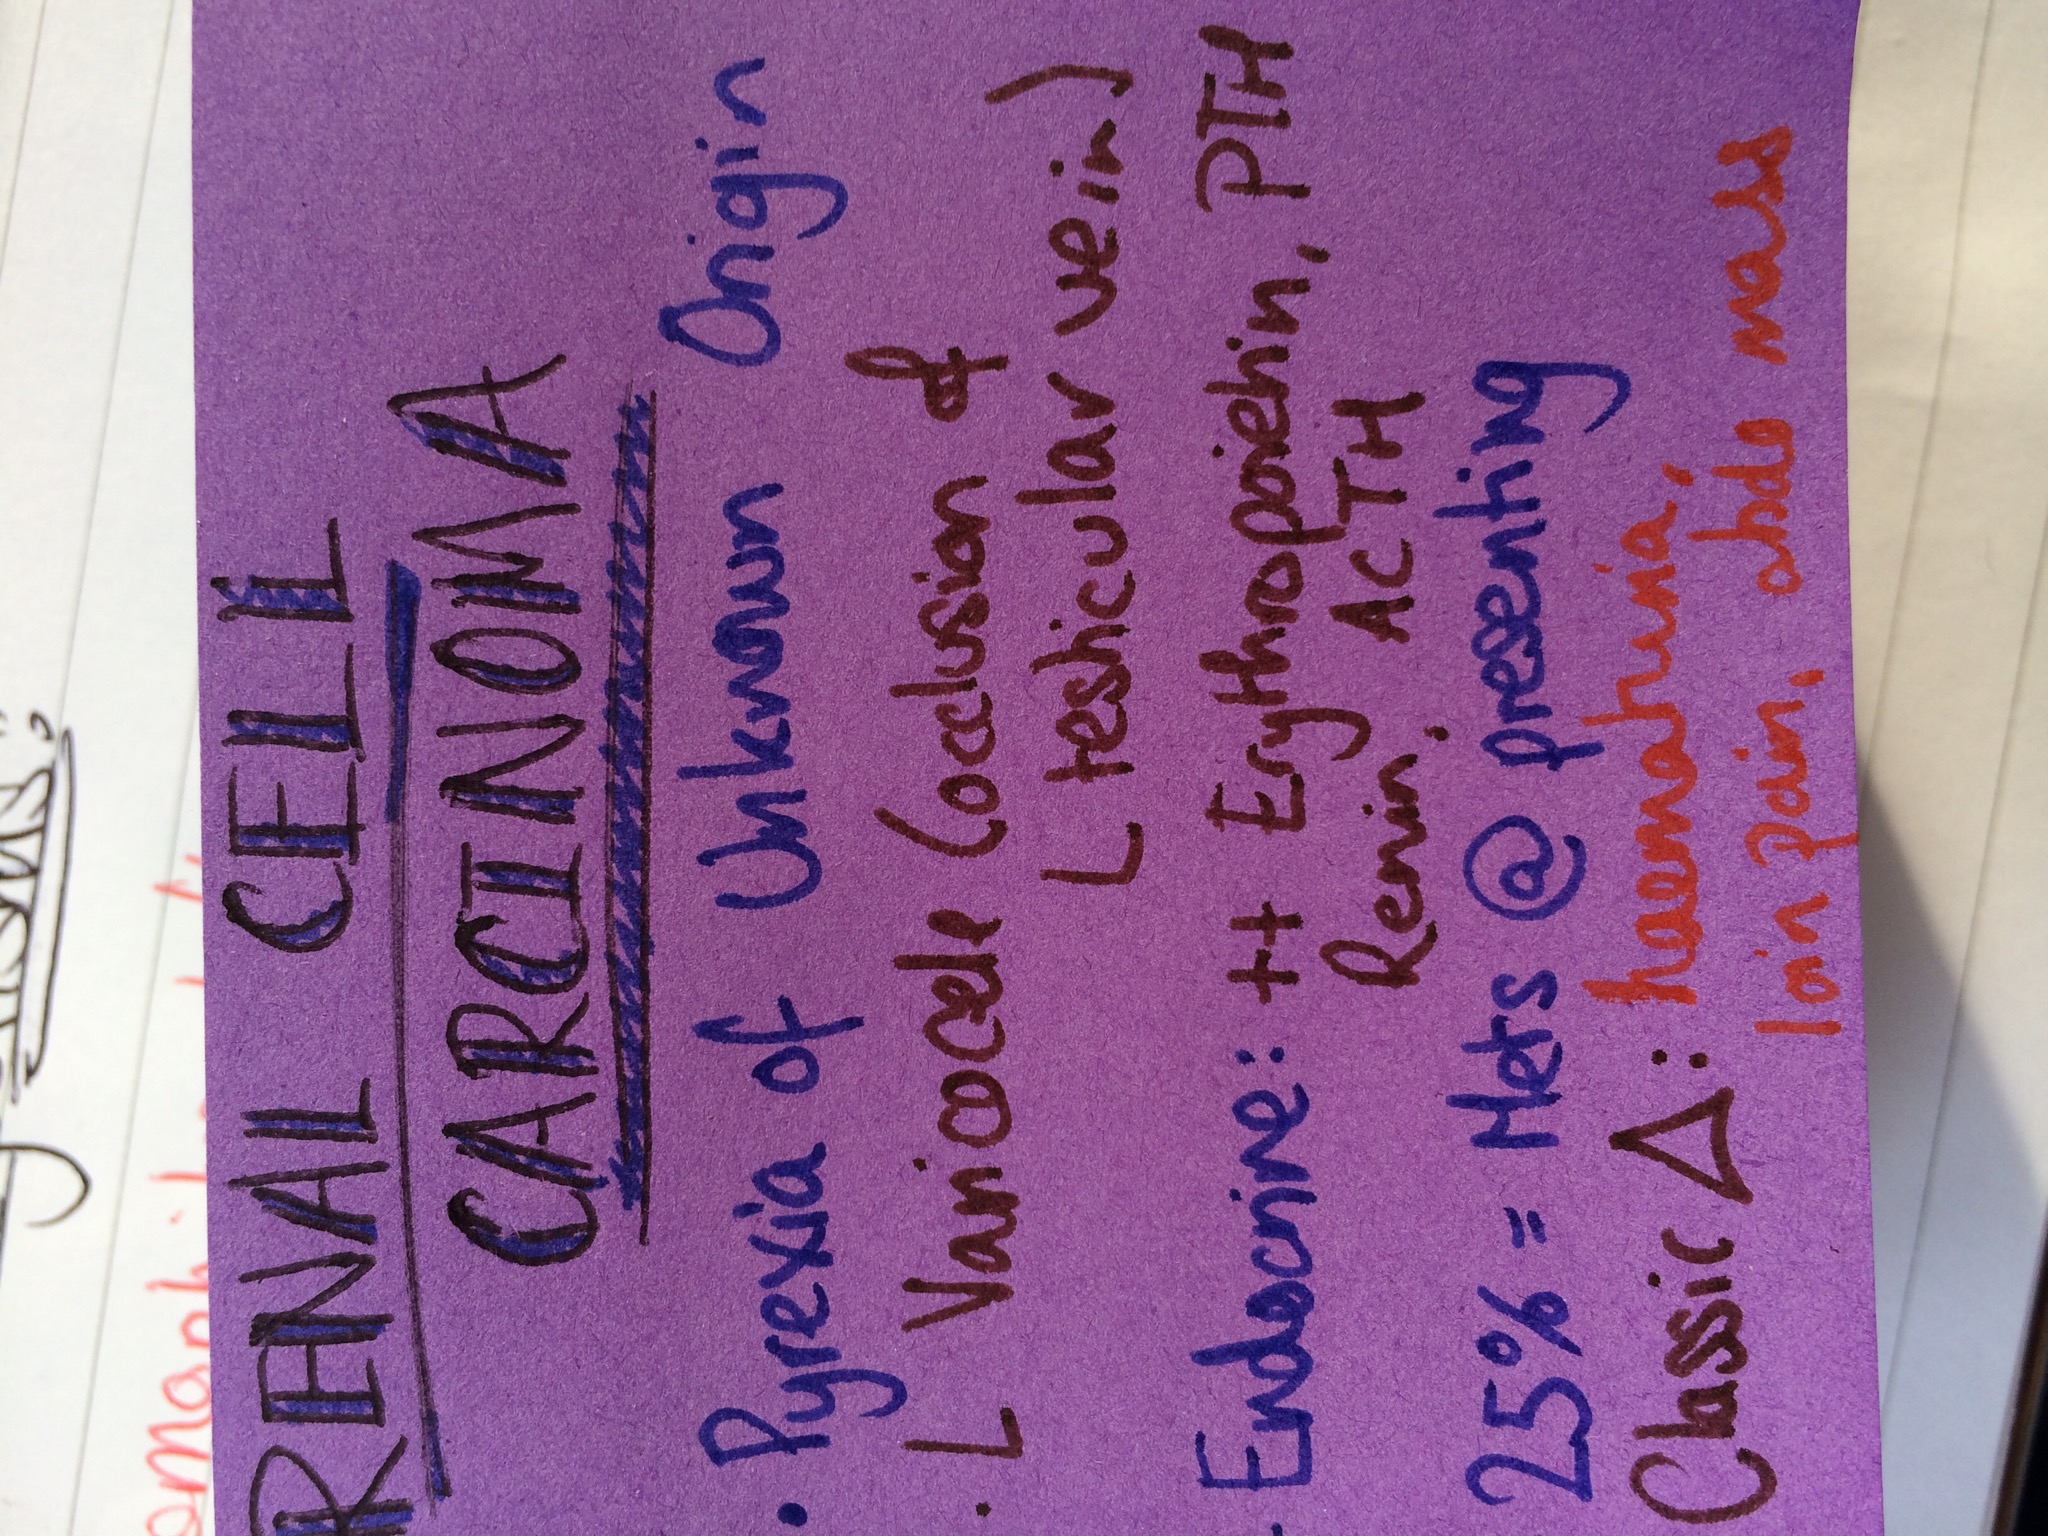 RENAL CELL
CARCINOMA
• Pyrexia of Unknown Origin
• L Varicocele (occlusion of
L testicular vein)
• Endocrine: ++ Erythropoietin, PTH
Renin. ACTH
25% = Mets @ presenting
Classic △: haematuria,
loin pain, abdo mass